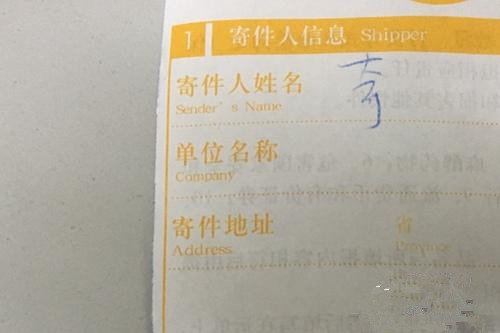 1 寄件人信息 Shipper
寄件人姓名 奇
Sender's Name
单位名称
Company
寄件地址 省
Address Province